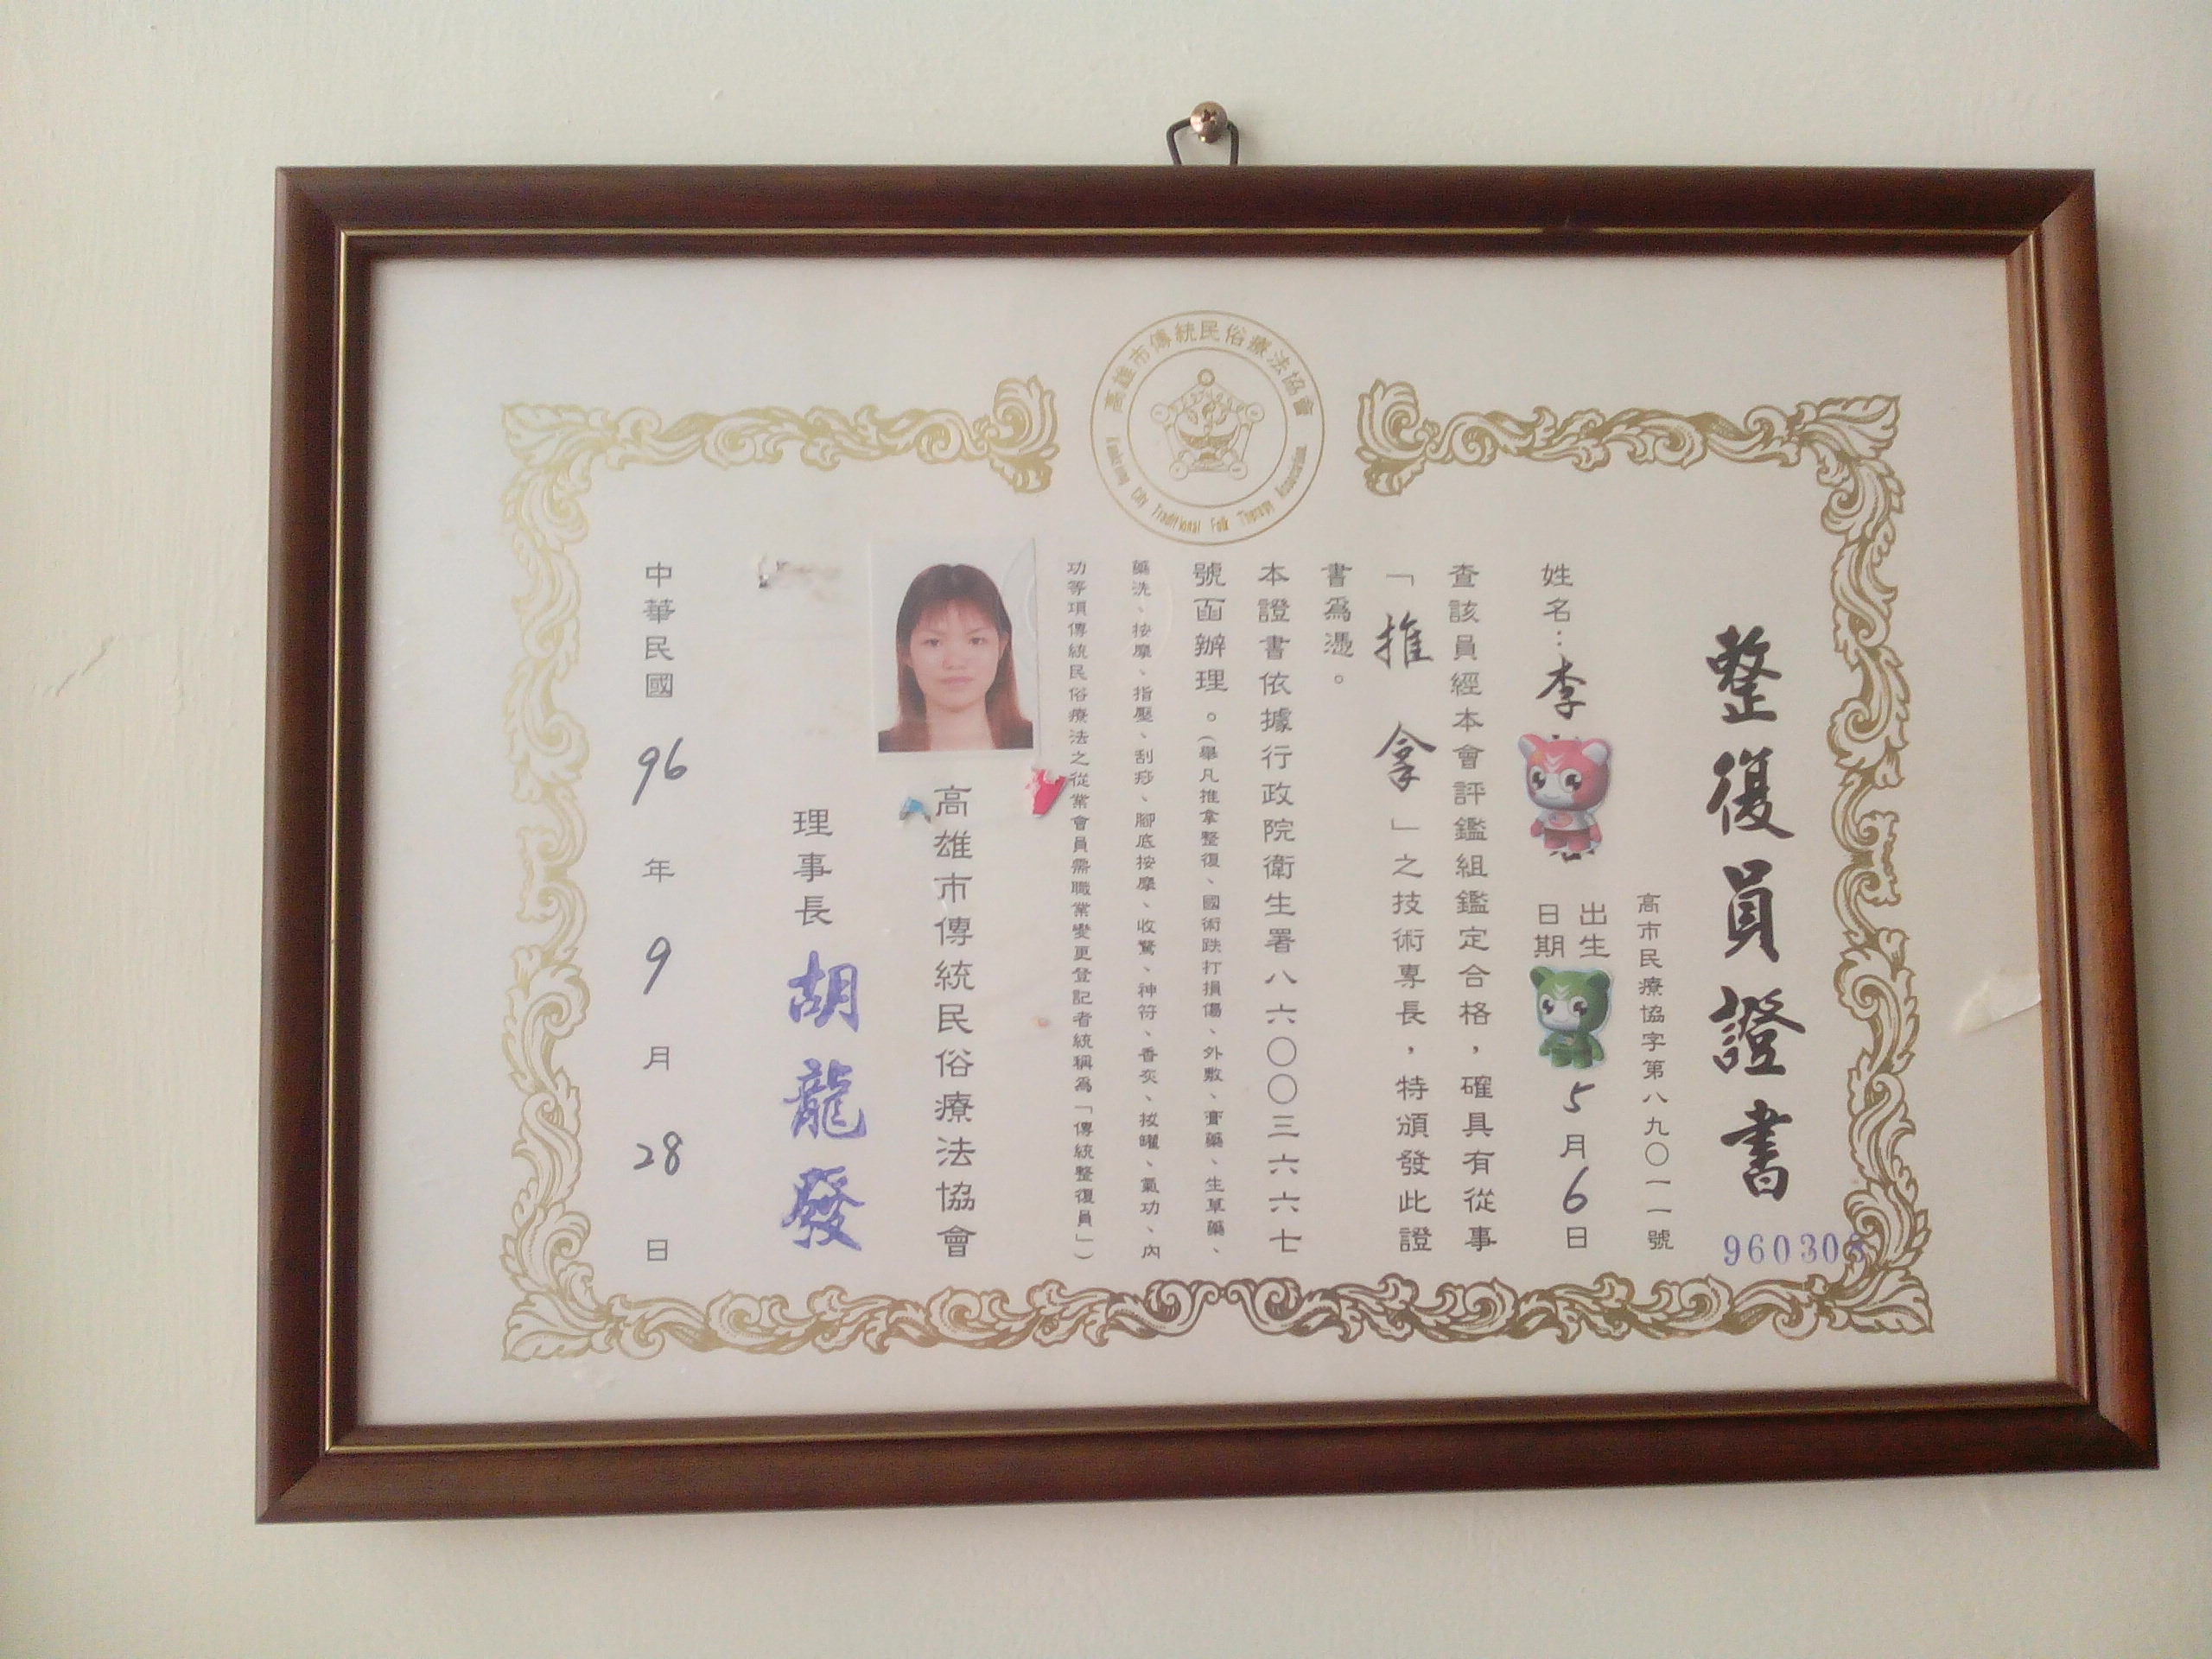 高雄市傳統民俗療法協會
Kaohsiung City Traditional Folk Therapy Association
整復員證書
960308
高市民療協字第八九〇一一號
姓名：李
出生
日期
5月6日
查該員經本會評鑑組鑑定合格，確具有從事
「推拿」之技術專長，特頒發此證
書為憑。
本證書依據行政院衛生署八六〇〇三六六七
號函辦理。（舉凡推拿整復、國術跌打損傷、外敷、膏藥、生草藥、
藥洗、按摩、指壓、刮痧、腳底按摩、收驚、神符、香灸、拔罐、氣功、內
功等項傳統民俗療法之從業會員需職業變更登記者統稱為「傳統整復員」）
高雄市傳統民俗療法協會
理事長 胡龍發
中華民國 96 年 9 月 28 日